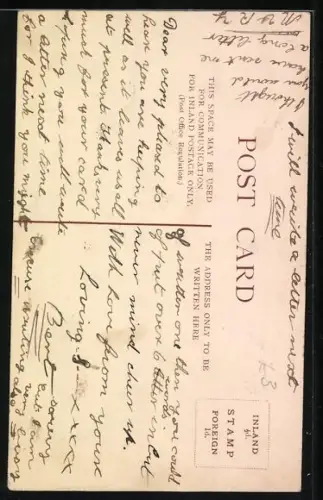 POST CARD
THIS SPACE MAY BE USED
FOR COMMUNICATION
FOR INLAND POSTAGE ONLY.
(Post Office Regulation.)
THE ADDRESS ONLY TO BE
WRITTEN HERE
INLAND
½d.
STAMP
FOREIGN
1d.
£3
I will write a letter next
time
I thought
you would
have sent me
a long letter
Dear very pleased to
hear you are keeping
well as it leaves us all
at present. Thanks very
much for your card
hoping you will write
a letter next time
for I think you might
of written one than you could
of put over 6 words
never mind cheer up.
With love from yours
Loving xxxx
Best
Excuse writing